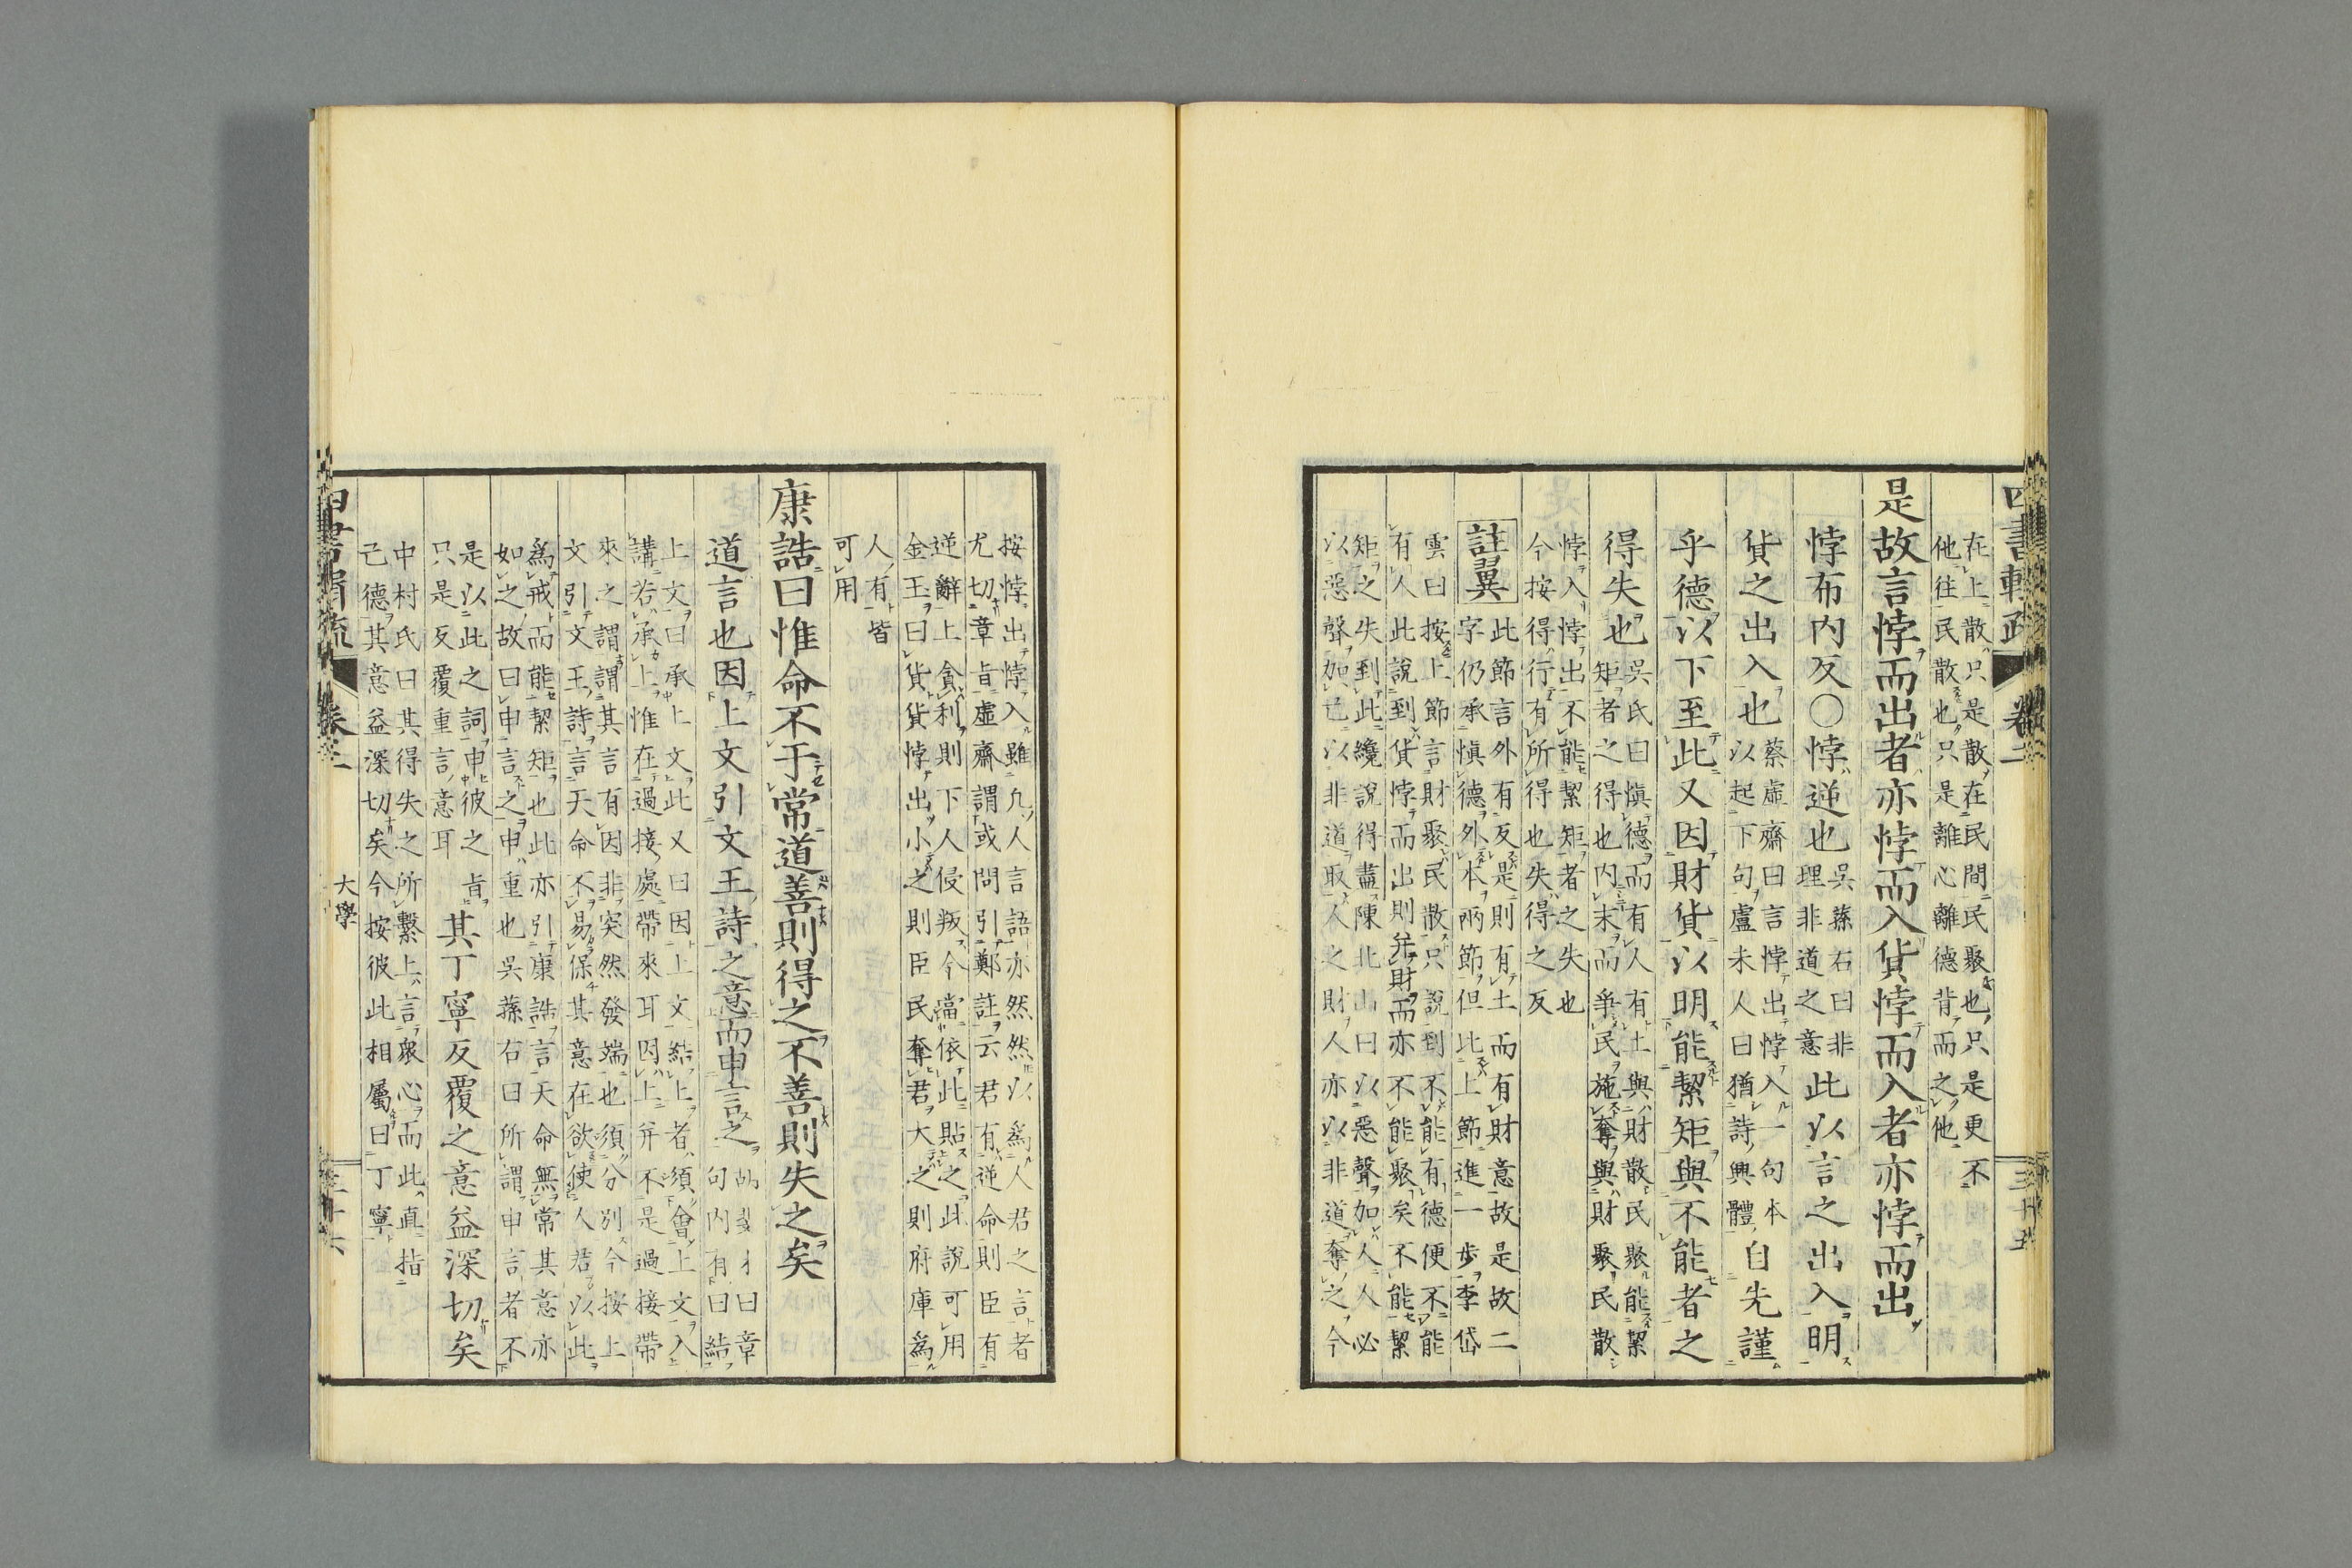 在上散只是散在民間民聚也只是更不
他往民散也只是離心離德背而之他
是故言悖而出者亦悖而入貨悖而入者亦悖而出
悖布内反○悖逆也
吳蓀右曰非
理非道之意
此以言之出入明
貨之出入也
蔡虛齋曰言悖出悖入一句本
以起下句盧未人曰猶詩興體
自先謹
乎德以下至此又因財貨以明能絜矩與不能者之
得失也
吳氏曰愼德而有人有土與財散民聚能絜
矩者之得也内末而爭民施奪與財聚民散
悖入悖出不能絜矩者之失也
今按得行有所得也失得之反
註翼
此節言外有反是則有土而有財意故是故二
字仍承愼德外本兩節但比上節進一歩李岱
雲曰按上節言財聚民散只說到不能有德便不能
有人此說到貨悖而出則幷財而亦不能聚矣不能絜
矩之失到此纔說得盡陳北山曰以惡聲加人人必
以惡聲加己以非道取人之財人亦以非道奪之今
按悖出悖入雖凢人言語亦然然以爲人君之言者
尤切章旨虛齋謂或問引鄭註云君有逆命則臣有
逆辭上貪利則下人侵叛今當依此貼之此說可用
金玉曰貨貨悖出小之則臣民奪君大之則府庫爲
人有皆
可用
康誥曰惟命不于常道善則得之不善則失之矣
道言也因上文引文王詩之意而申言之
曰章
句内有曰結
上文曰承上文此又曰因上文結上者須會上文入
講若承上惟在過接處帶來耳因上并不是過接帶
來之謂謂其言有因非突然發端也須分別今按上
文引文王詩言天命不易保其意在欲使人君以此
爲戒而能絜矩也此亦引康誥言天命無常其意亦
如之故曰申言之申重也吳蓀右曰所謂申言者不
是以此之詞申彼之旨
只是反覆重言意耳
其丁寧反覆之意益深切矣
中村氏曰其得失之所繫上言衆心而此直指
己德其意益深切矣今按彼此相屬曰丁寧
大學